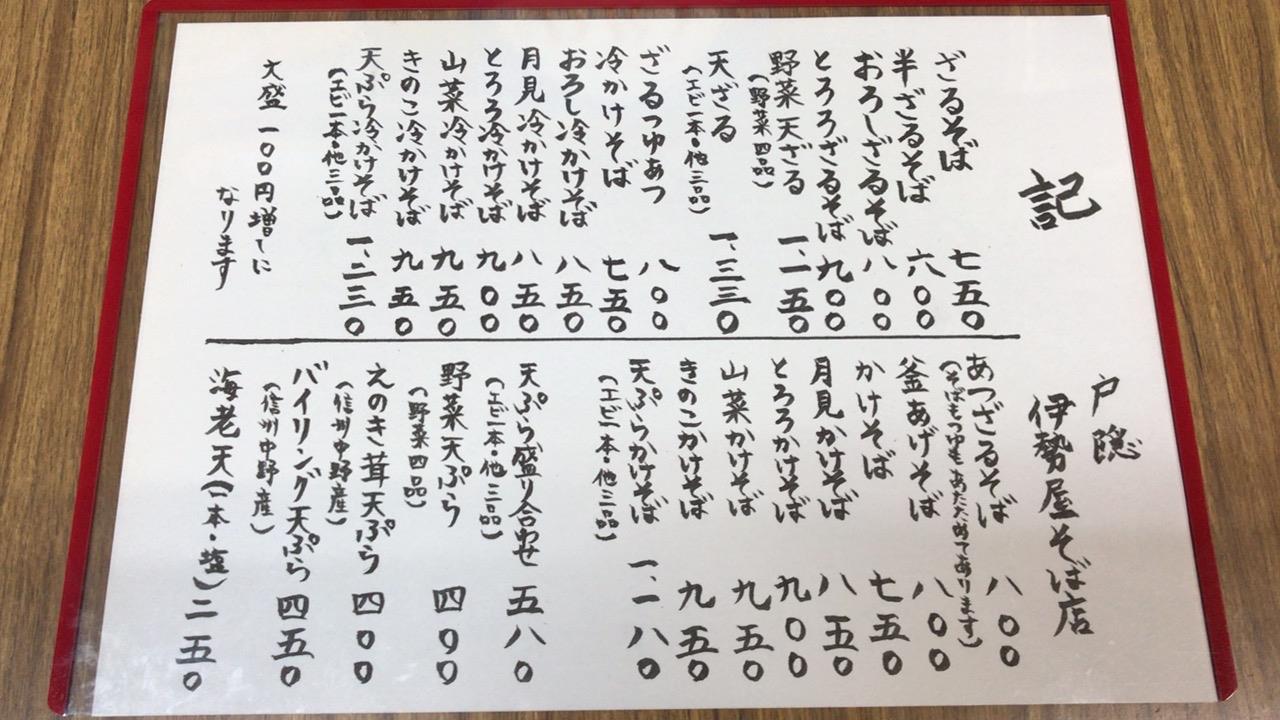 記
戸隠
伊勢屋そば店
ざるそば 七五〇
半ざるそば 六〇〇
おろしざるそば 八〇〇
とろろざるそば 九〇〇
野菜天ざる 一、一五〇
(野菜四品)
天ざる 一、三三〇
(エビ一本・他三品)
ざるつゆあつ 八〇〇
冷かけそば 七五〇
おろし冷かけそば 八五〇
月見冷かけそば 八五〇
とろろ冷かけそば 九〇〇
山菜冷かけそば 九五〇
きのこ冷かけそば 九五〇
天ぷら冷かけそば 一、二三〇
(エビ一本・他三品)
大盛一〇〇円増しに
なります
あつざるそば 八〇〇
(そばもつゆもあたためてあります)
釜あげそば 八〇〇
かけそば 七五〇
月見かけそば 八五〇
とろろかけそば 九〇〇
山菜かけそば 九五〇
きのこかけそば 九五〇
天ぷらかけそば 一、一八〇
(エビ一本・他三品)
天ぷら盛り合わせ 五八〇
(エビ一本・他三品)
野菜天ぷら 四〇〇
(野菜四品)
えのき茸天ぷら 四〇〇
(信州中野産)
バイリング天ぷら 四五〇
(信州中野産)
海老天(一本・塩) 二五〇